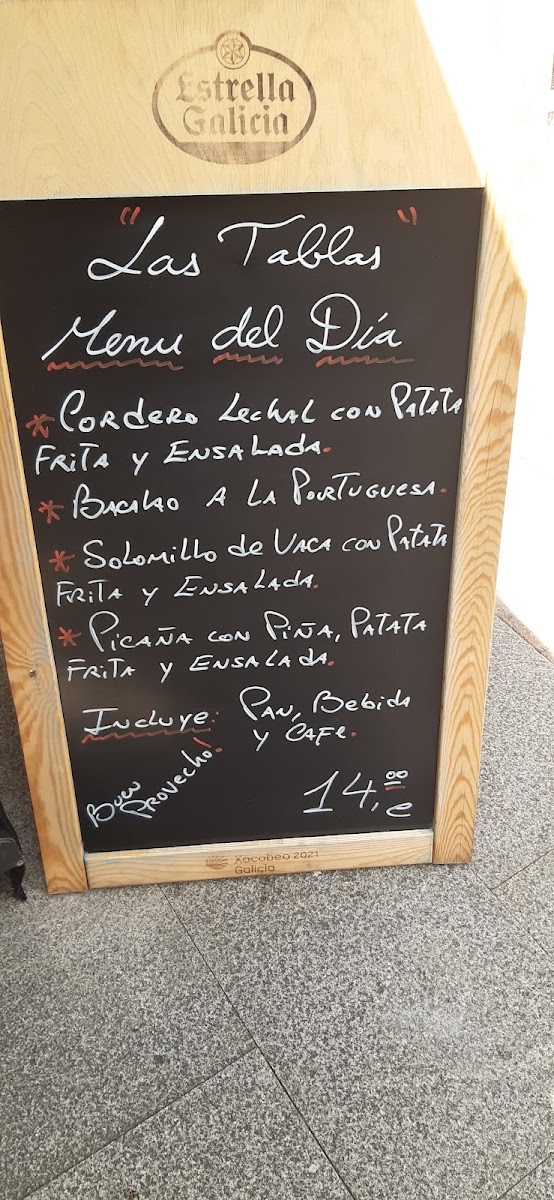 Estrella
Galicia
"Las Tablas"
Menu del Día
* Cordero Lechal con Patata
Frita y Ensalada.
* Bacalao a la Portuguesa.
* Solomillo de Vaca con Patata
Frita y Ensalada.
* Picaña con Piña, Patata
Frita y Ensalada.
Incluye: Pan, Bebida
y Cafe.
Buen
Provecho!
14,00 e
Xacobeo 2021
Galicia